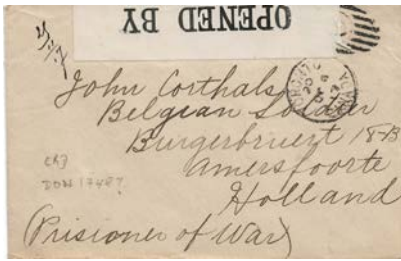 OPENED BY
John Corthals
Belgian Soldier
Burgerbruert 18-B
Amersfoorte
Holland
(Prisioner of War)